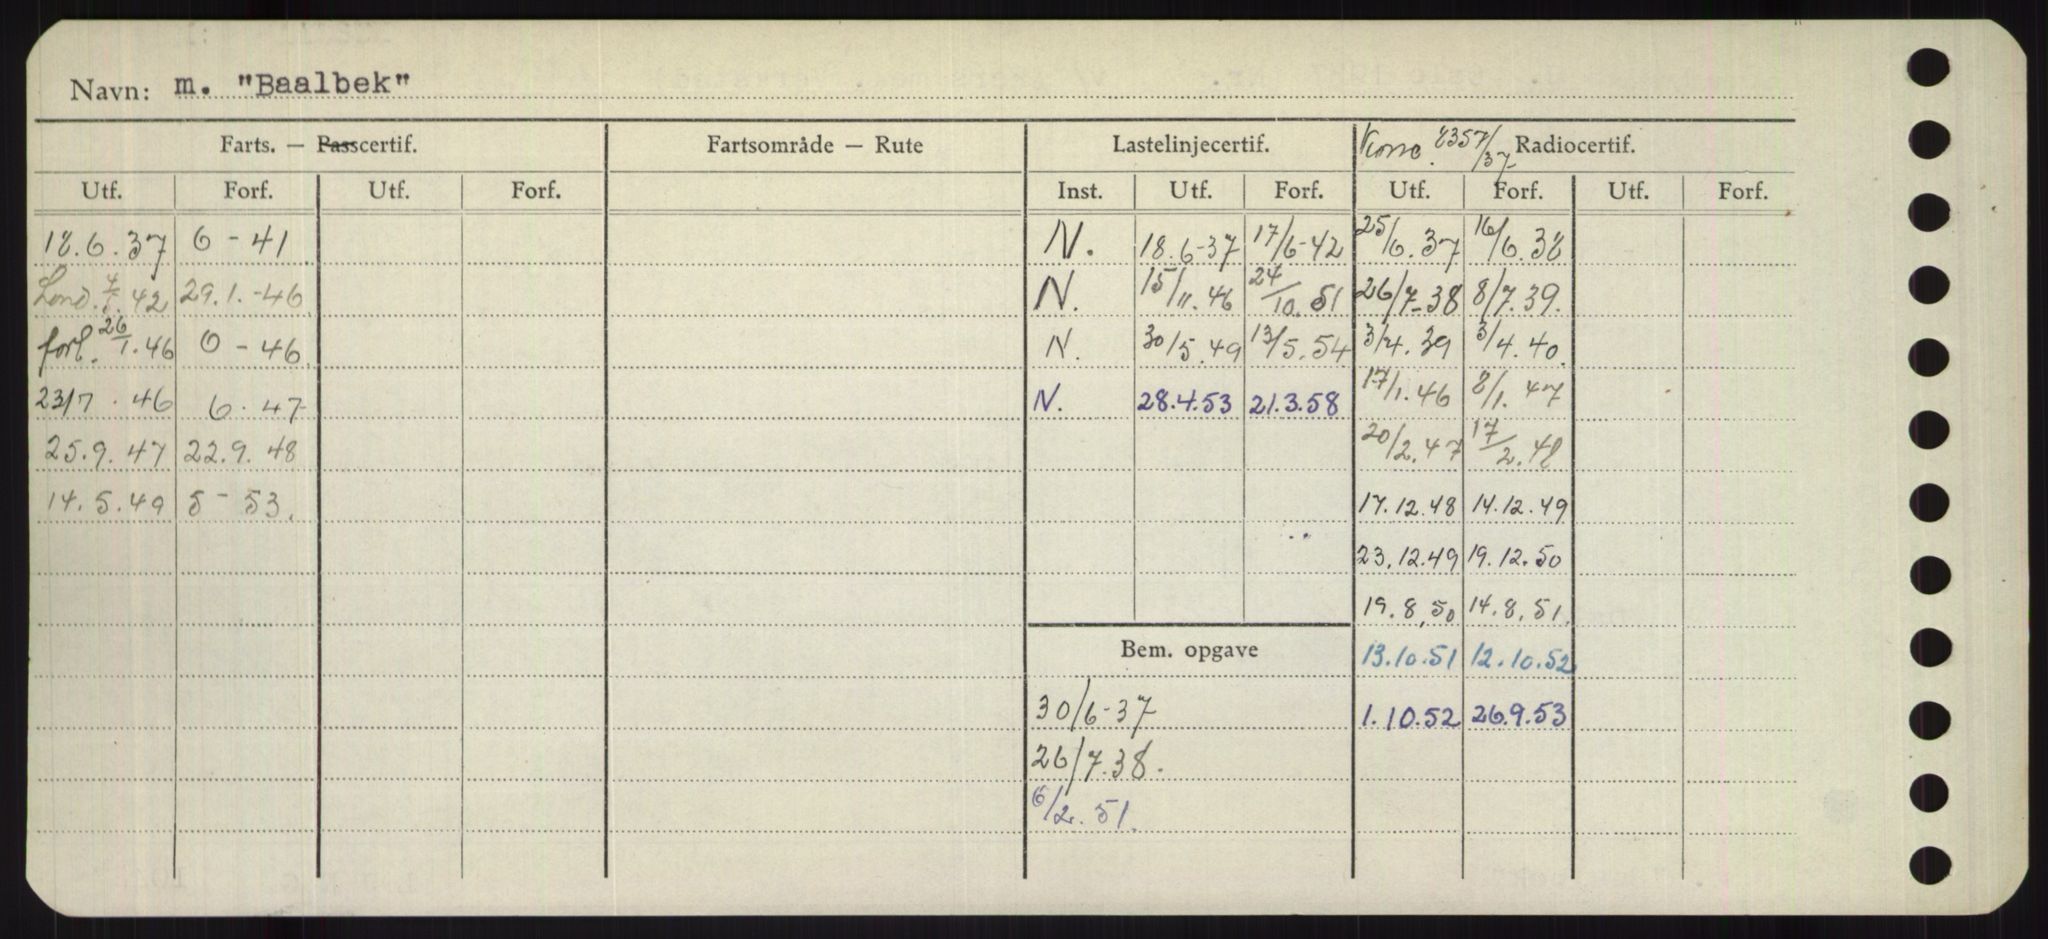 Navn: m. "Baalbek"
Farts. — Passcertif. Fartsområde — Rute Lastelinjecertif. Konc. 2357/37 Radiocertif.
Utf. Forf. Utf. Forf. Inst. Utf. Forf. Utf. Forf. Utf. Forf.
18.6.37 6 - 41 N. 18.6-37 17/6-42 25/6.37 16/6.38
Lond. 42 29.1.-46 N. 15/11.46 24/10.51 26/7-38 8/7.39.
forl. 26/1.46 6 - 46. N. 30/5.49 13/5.54 3/4.39 3/4.40.
23/7.46 6.47 N. 28.4.53 21.3.58 17/1.46 8/1.47
25.9.47 22.9.48 20/2.47 17/2.48
14.5.49 5 - 53. 17.12.48 14.12.49
23.12.49 19.12.50
19.8.50 14.8.51.
Bem. opgave 13.10.51 12.10.52
30/6-37 1.10.52 26.9.53
26/7.38.
6/2.51.